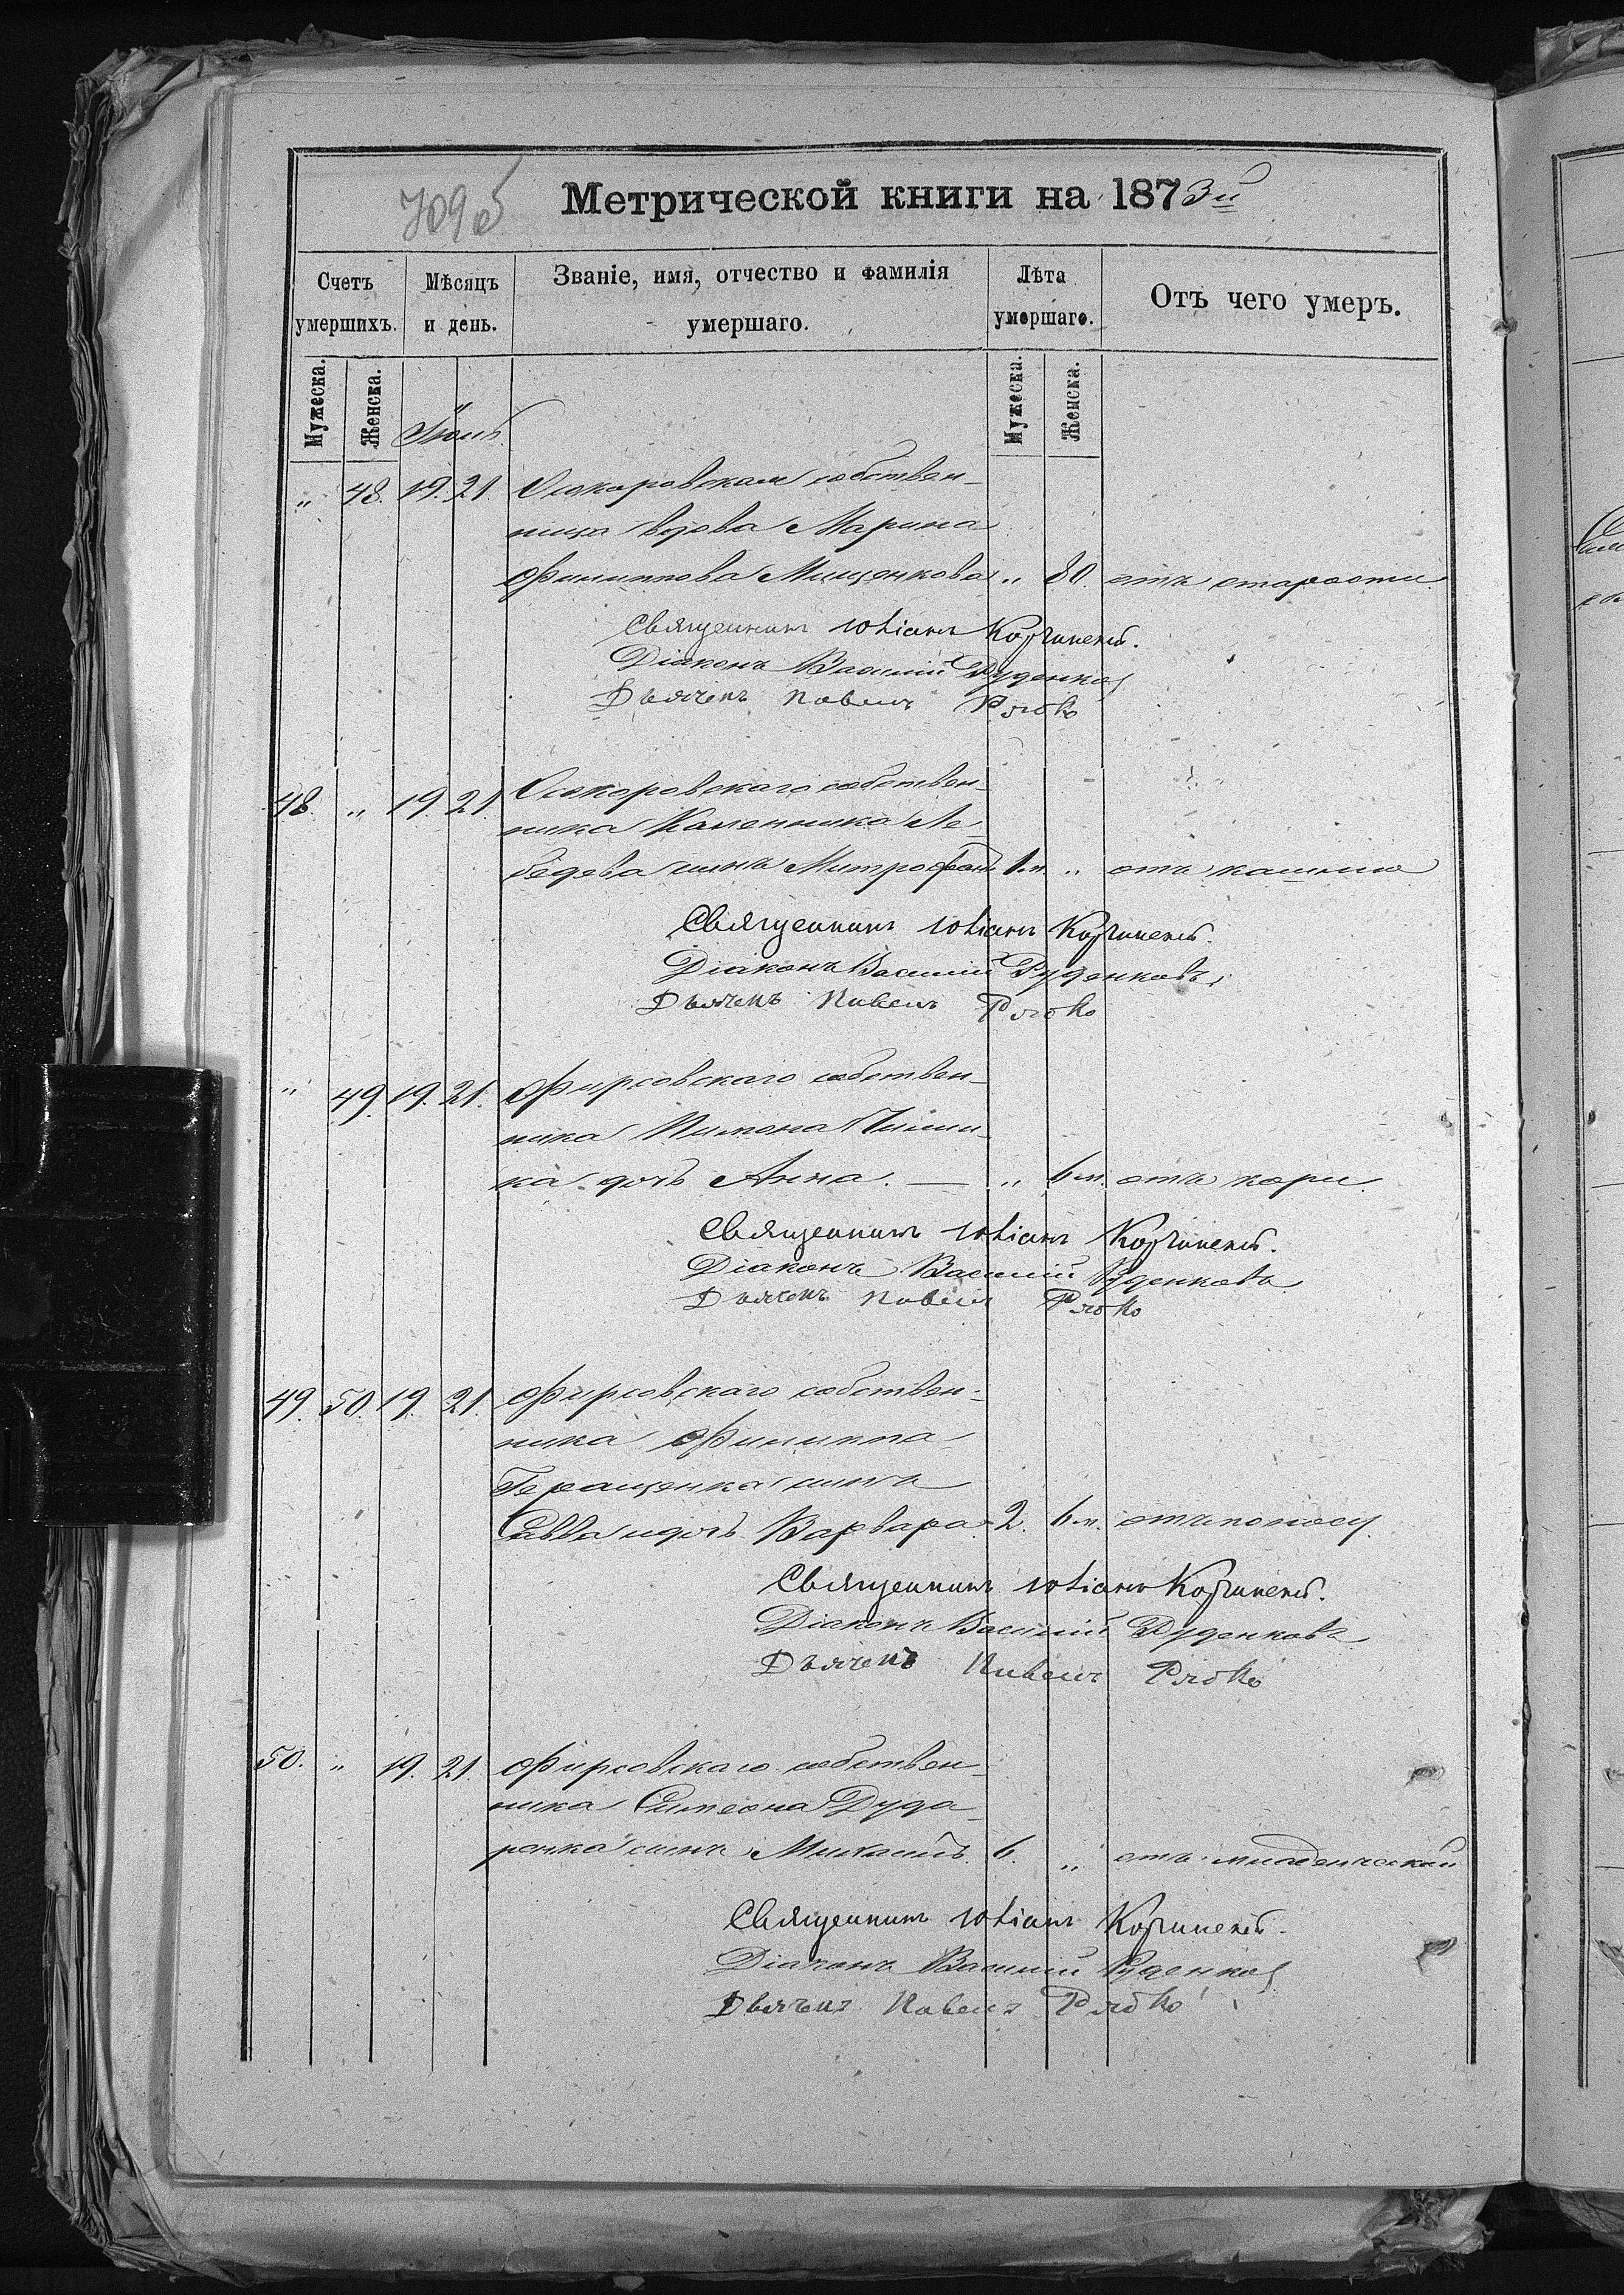 709об
Метрической книги на 1873й
Счетъ умершихъ.
Мѣсяцъ и день.
Званіе, имя, отчество и фамилія умершаго.
Лѣта умершаго.
Отъ чего умеръ.
Мужеска. Женска. Мужеска. Женска.
" 48. 19. 21. собствен-
ница вдова Марина
Филиппова Мищенкова " 80. отъ старости
Священникъ Іоаннъ
Діаконъ Василій Руденковъ
Дьячекъ Павелъ Рябко
48. " 19. 21. собствен-
ника Каленика Ле-
бедева сынъ Митрофанъ 1 м. " отъ кашлю
Священникъ Іоаннъ
Діаконъ Василій Руденковъ
Дьячекъ Павелъ Рябко
" 49. 19. 21. Фирсовскаго собствен-
ника Пимона
ка дочь Анна. — " 6 м. отъ кори
Священникъ Іоаннъ
Діаконъ Василій Руденковъ
Дьячекъ Павелъ Рябко
49. 50. 19. 21. Фирсовскаго собствен-
ника Филиппа
Геращенка сынъ
Савва и дочь Варвара 2. 6 м. отъ поносу
Священникъ Іоаннъ
Діаконъ Василій Руденковъ
Дьячекъ Павелъ Рябко
50. " 19. 21. Фирсовскаго собствен-
ника Симеона Дуда-
ренка сынъ Михаилъ. 6. " отъ младенческой
Священникъ Іоаннъ
Діаконъ Василій Руденковъ
Дьячекъ Павелъ Рябко